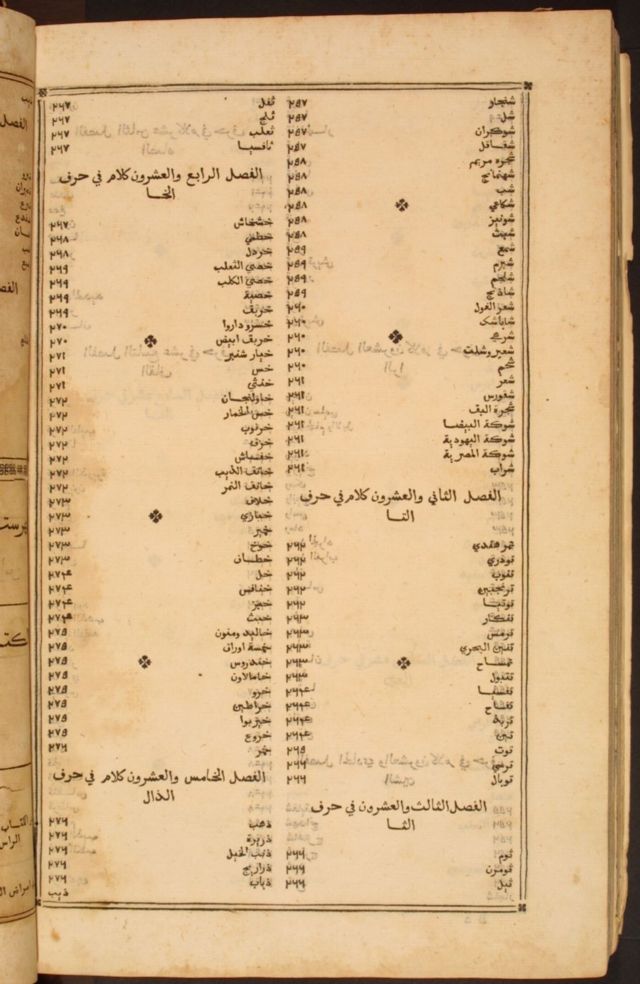 شنجار ٢٥٧
شل ٢٥٧
شوكران ٢٥٧
شقاقل ٢٥٧
شجره مريم ٢٥٨
شهمانج ٢٥٨
شب ٢٥٨
شكاعي ٢٥٨
شونيز ٢٥٨
شبث ٢٥٨
شمع ٢٥٩
شبرم ٢٥٩
شلجم ٢٥٩
شاذنج ٢٥٩
شعر الغول ٢٦٠
شاباشك ٢٦٠
شربي ٢٦٠
شعير
شحم ٢٦٠
شعر ٢٦١
شغورس ٢٦١
شجرة البق ٢٦١
شوكة البيضا ٢٦١
شوكة اليهودية ٢٦١
شوكة المصرية ٢٦١
شراب ٢٦١
الفصل الثاني والعشرون كلام في حرف
التا
تمر هندي ٢٦٢
تودري ٢٦٢
تنوب ٢٦٢
ترنجبين ٢٦٢
توتيا ٢٦٢
تنكار ٢٦٣
ترمس ٢٦٣
تنين البحري ٢٦٣
تمساح ٢٦٣
تنبول ٢٦٣
تفسيا ٢٦٤
تفاح ٢٦٤
تربد ٢٦٤
تين ٢٦٤
توت ٢٦٥
ترمس ٢٦٦
توبال ٢٦٦
الفصل الثالث والعشرون في حرف
الثا
ثوم ٢٦٦
ثومون ٢٦٦
ثيل ٢٦٦
ثفل ٢٦٧
ثلج ٢٦٧
ثعلب ٢٦٧
ثافسيا ٢٦٧
الفصل الرابع والعشرون كلام في حرف
الخا
خشخاش ٢٦٧
خطمي ٢٦٨
خردل ٢٦٨
خصي الثعلب ٢٦٩
خصي الكلب ٢٦٩
خصية ٢٦٩
خربق ٢٦٩
خسرو داروا ٢٧٠
خربق ابيض ٢٧٠
خيار شنبر ٢٧١
خس ٢٧١
خنثي ٢٧١
خاولنجان ٢٧٢
خس الحمار ٢٧٢
خرنوب ٢٧٢
خزف ٢٧٢
خفاش ٢٧٢
خانق الذيب ٢٧٢
خانق النمر ٢٧٢
خلاف ٢٧٣
خبازي ٢٧٣
خمير ٢٧٣
خوخ ٢٧٣
خطان ٢٧٣
خل ٢٧٤
خنافس ٢٧٤
خبز ٢٧٤
خبث ٢٧٤
خاليدومنون ٢٧٥
خمسة اوراق ٢٧٥
خندروس ٢٧٥
خامالاون ٢٧٥
خرو ٢٧٥
خراطين ٢٧٥
خيربوا ٢٧٥
خروع ٢٧٥
خمر ٢٧٦
الفصل الخامس والعشرون كلام في حرف
الذال
ذهب ٢٧٦
ذريرة ٢٧٦
ذنب الخيل ٢٧٦
ذراريح ٢٧٦
ذباب ٢٧٦
ذيب